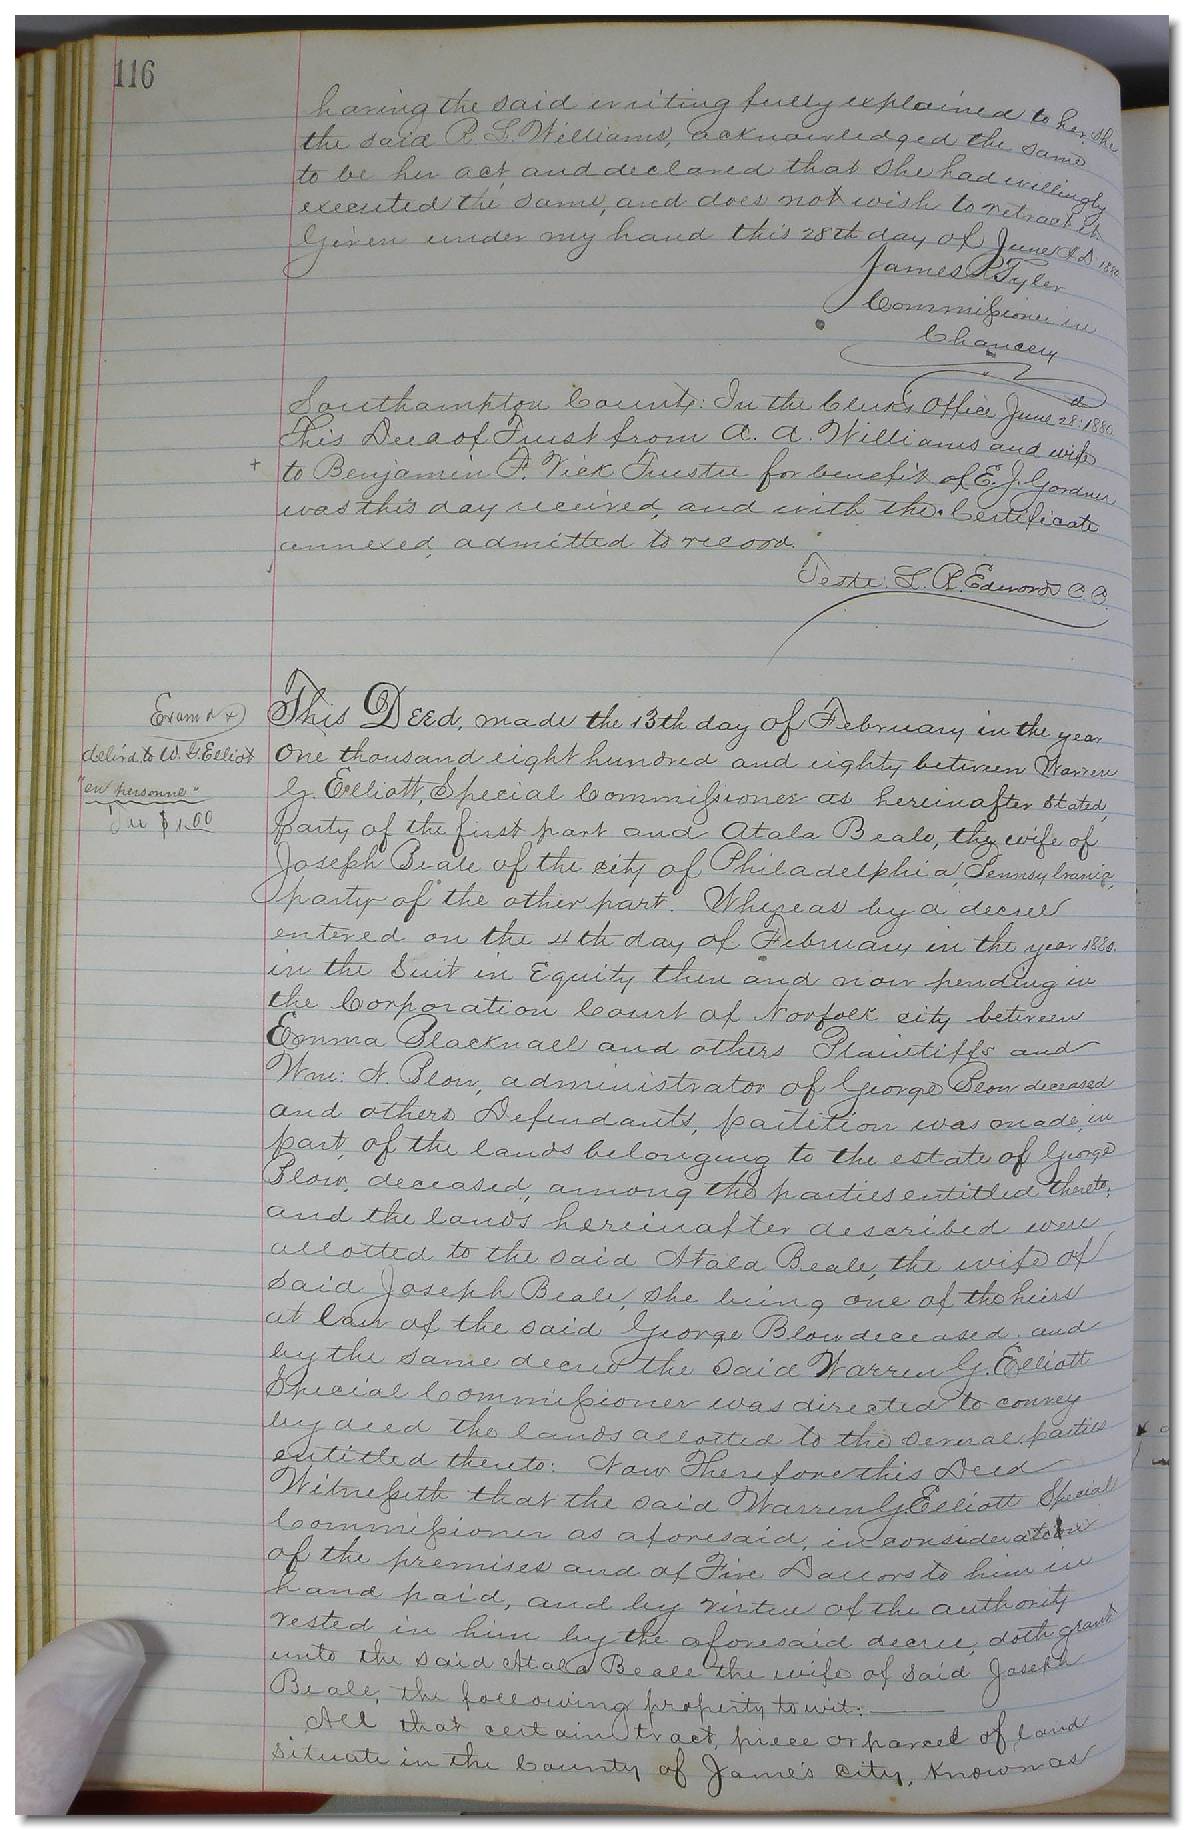 116
having the said writing fully explained to her, she
the said P. S. Williams, acknowledged the same
to be her act and declared that she had willingly
executed the same, and does not wish to retract it.
Given under my hand this 28th day of June A.D. 1880.
James P Tyler
Commissioner in
Chancery
Southampton County: In the Clerk's Office June 28th 1880.
This Deed of Trust from A. A. Williams and wife
to Benjamin F. Vick Trustee for benefit of E. J. Gardner
was this day received, and with the Certificate
annexed, admitted to record.
Teste. L. R. Edwards C. C.
Examd
delivd. to W. G. Elliott
"en personne"
$1.00
This Deed, made the 13th day of February in the year
One thousand eight hundred and eighty between Warren
G. Elliott, Special Commissioner as hereinafter stated,
party of the first part and Atala Beale, the wife of
Joseph Beale of the city of Philadelphia, Pennsylvania,
party of the other part. Whereas by a decree
entered on the 4th day of February in the year 1880.
in the Suit in Equity then and now pending in
the Corporation Court of Norfolk city between
Emma Blacknall and others Plaintiffs and
Wm: N. Blow, administrator of George Blow deceased
and others Defendants, partition was made, in
part, of the lands belonging to the estate of George
Blow, deceased, among the parties entitled thereto,
and the lands hereinafter described were
allotted to the said Atala Beale, the wife of
said Joseph Beale, she being one of the heirs
at law of the said George Blow deceased, and
by the same decree the said Warren G. Elliott
Special Commissioner was directed to convey
by deed the lands allotted to the several parties
entitled thereto: Now Therefore this Deed
Witnesseth that the said Warren G. Elliott Special
Commissioner as aforesaid, in consideration
of the premises and of Five Dollars to him in
hand paid, and by virtue of the authority
vested in him by the aforesaid decree, doth grant
unto the said Atala Beale the wife of said Joseph
Beale, the following property to wit:
All that certain tract, piece or parcel of land
situate in the County of James city, known as